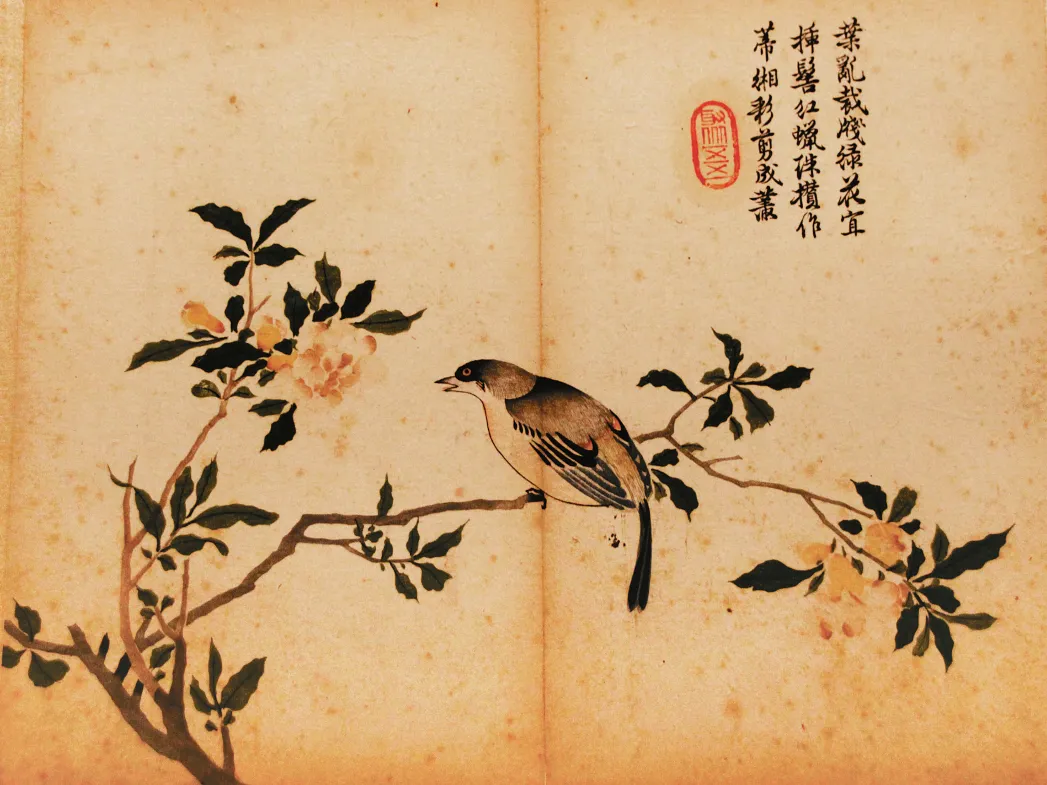 葉亂裁牋綠花宜
挿髻紅蠟珠攢作
蒂緗彩剪成叢